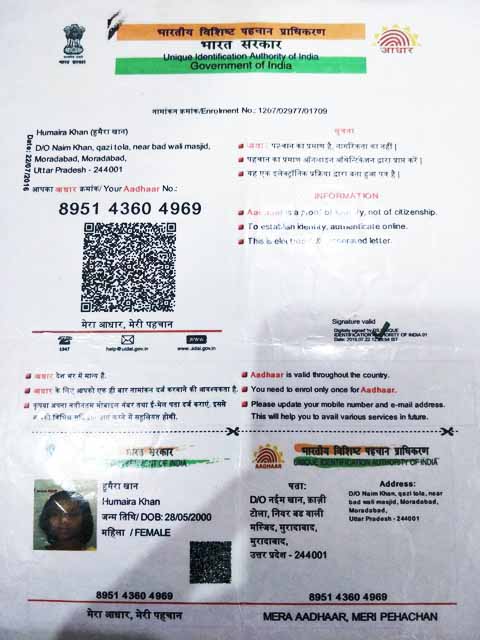 भारतीय विशिष्ट पहचान प्राधिकरण
भारत सरकार
Unique Identification Authority of India
Government of India
भारत सरकार
आधार
नामांकन क्रमांक/Enrolment No.: 1207/02977/01709
Date: 22/07/2016
Humaira Khan (हुमैरा खान)
D/O Naim Khan, qazi tola, near bad wali masjid,
Moradabad, Moradabad,
Uttar Pradesh - 244001
आपका आधार क्रमांक/ Your Aadhaar No.:
8951 4360 4969
मेरा आधार, मेरी पहचान
1947
help@uidai.gov.in
www.uidai.gov.in
सूचना
आधार पहचान का प्रमाण है, नागरिकता का नहीं |
पहचान का प्रमाण ऑनलाइन ऑथेन्टिकेशन द्वारा प्राप्त करें |
यह एक इलेक्ट्रॉनिक प्रक्रिया द्वारा बना हुआ पत्र है |
INFORMATION
Aadhaar is a proof of identity, not of citizenship.
To establish identity, authenticate online.
This is electronically generated letter.
Signature valid
Digitally signed by DS UNIQUE
IDENTIFICATION AUTHORITY OF INDIA 01
Date: 2016.07.22 IST
आधार देश भर में मान्य है.
आधार के लिए आपको एक ही बार नामांकन दर्ज करवाने की आवश्यकता है.
कृपया अपना नवीनतम मोबाइल नंबर तथा ई-मेल पता दर्ज कराएं, इससे
आपको विभिन्न सुविधाएं प्राप्त करने में सहूलियत होगी.
Aadhaar is valid throughout the country.
You need to enrol only once for Aadhaar.
Please update your mobile number and e-mail address.
This will help you to avail various services in future.
भारत सरकार
GOVERNMENT OF INDIA
हुमैरा खान
Humaira Khan
जन्म तिथि/ DOB: 28/05/2000
महिला / FEMALE
8951 4360 4969
मेरा आधार, मेरी पहचान
भारतीय विशिष्ट पहचान प्राधिकरण
UNIQUE IDENTIFICATION AUTHORITY OF INDIA
AADHAAR
पता:
D/O नईम खान, क़ाज़ी
टोला, नियर बड वाली
मस्जिद, मुरादाबाद,
मुरादाबाद,
उत्तर प्रदेश - 244001
Address:
D/O Naim Khan, qazi tola, near
bad wali masjid, Moradabad,
Moradabad,
Uttar Pradesh - 244001
8951 4360 4969
MERA AADHAAR, MERI PEHACHAN